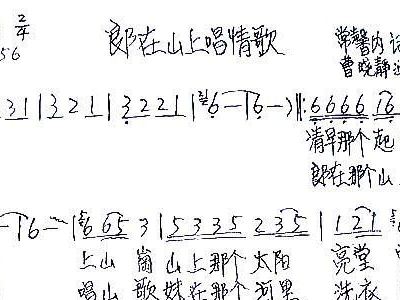 2/4
郎在山上唱情歌
常馨内词
曹晓静
56
31 | 3 2 1 | 3 2 2 1 | 6 — | 6 — ) ‖: 6 6 6 6 1 6
清早那个起
郎在那个山
— | 6 — | 6 6 5 3 | 5 3 3 5 2 3 5 | 1 2 1
上山 崗 山上那个 太阳 亮堂
唱山 歌 妹在那个 河里 洗衣